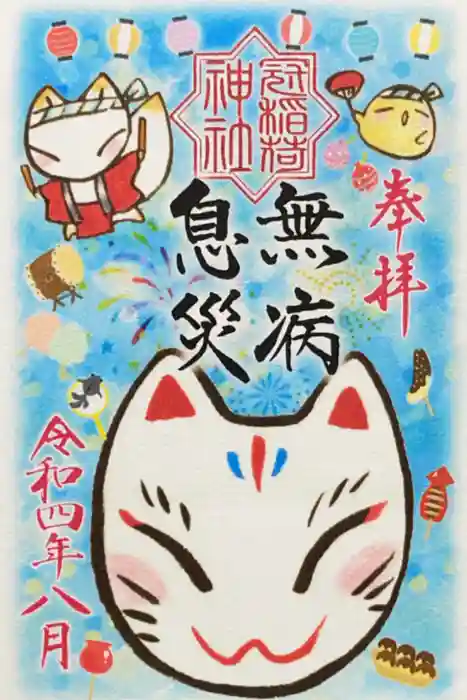 冠稲荷
神社
奉拝
無病
息災
令和四年八月